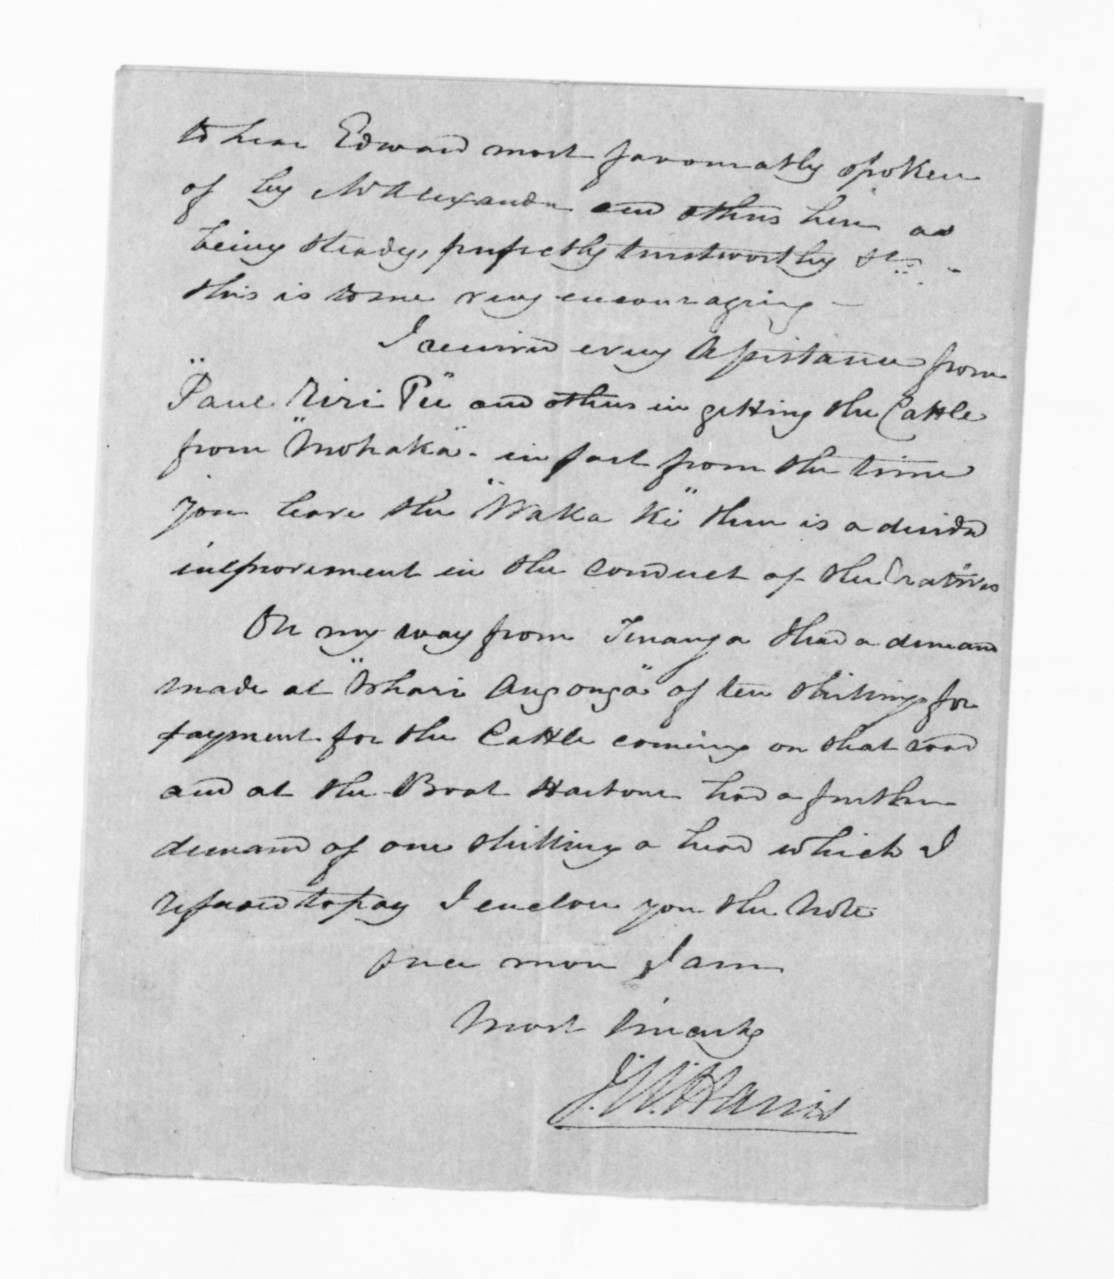 to hear Edward most favourably spoken
of by Mr Alexander and others here as
being steady, perfectly trustworthy &c -
this is to me very encouraging -
I received every Assistance from
"Paul Ririe Pu" and others in getting the Cattle
from "Mohaka" - in fact from the time
you leave the "Waka Ki" there is a decided
improvement in the conduct of the Natives
On my way from I had a demand
made at "Whari Angonga" of ten shillings for
payment for the Cattle coming on that road
and at the Boat Harbour had a further
demand of one shilling a head which I
refused to pay I enclose you the Note
Once more I am
Most Sincerely
J. W. Harris